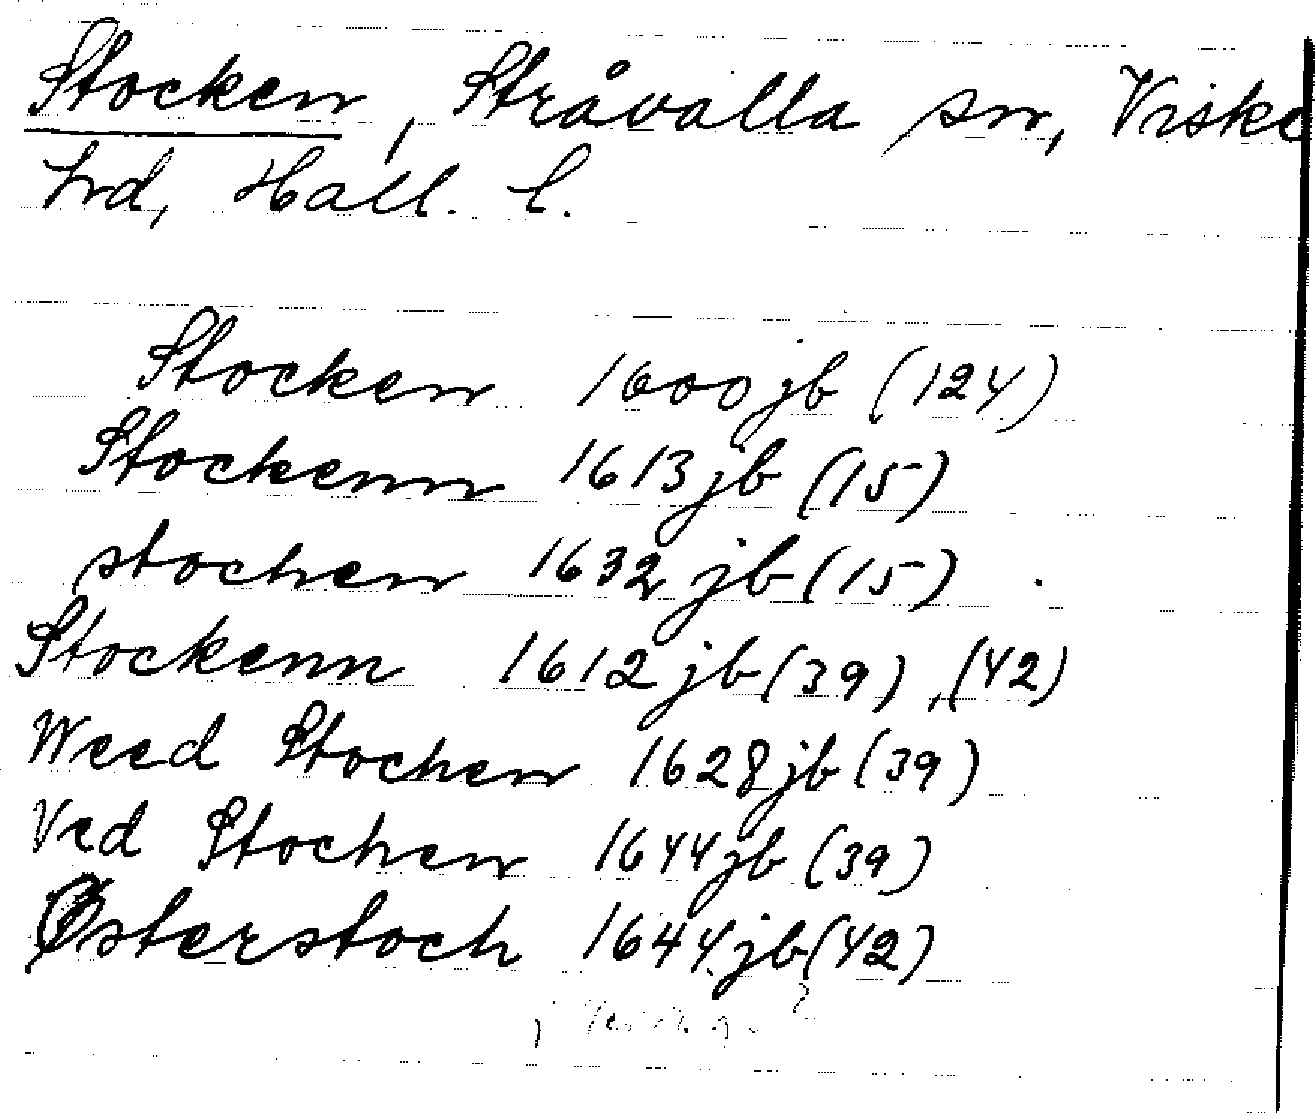 Stocken, Stråvalla sn, Viske
hrd, Hall. l.
Stocken 1600 jb (124)
Stockenn 1613 jb (15)
stochen 1632 jb (15)
Stockenn 1612 jb (39), (42)
Weed Stochen 1628 jb (39)
Ved Stochen 1644 jb (39)
Østerstoch 1644 jb (42)